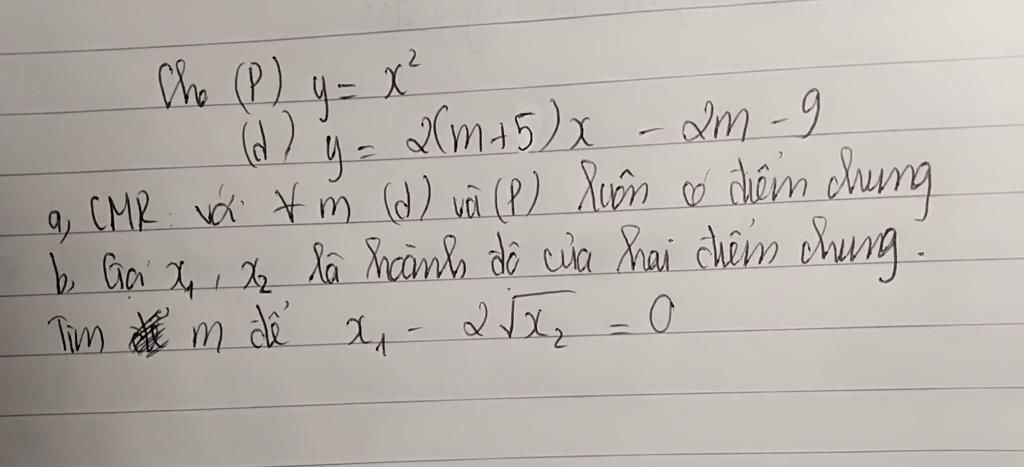 Cho (P) y = x²
(d) y = 2(m+5)x - 2m - 9
a, CMR: với ∀ m (d) và (P) luôn có điểm chung
b, Gọi x₁, x₂ là hoành độ của hai điểm chung.
Tìm m để x₁ - 2√x₂ = 0